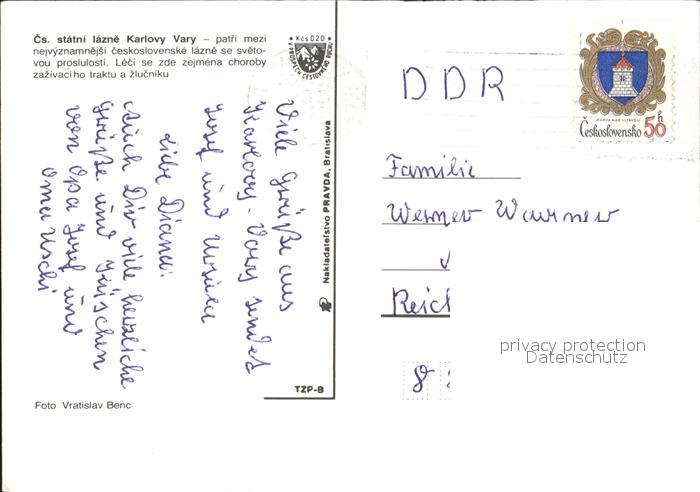 Čs. státní lázně Karlovy Vary – patří mezi
nejvýznamnější československé lázně se světo-
vou proslulostí. Léčí se zde zejména choroby
zažívacího traktu a žlučníku
Kčs 020
VE PROSPĚCH CESTOVNÍHO RUCHU
Viele Grüße aus
Karlovy-Vary sendet
Josef und Ursula
Liebe Diana!
Auch Dir viele herzliche
Grüße und Küßchen
von Opa Josef und
Oma Uschi
Nakladatelstvo PRAVDA, Bratislava
TZP-8
Foto Vratislav Benc
DDR
KAMÝK NAD VLTAVOU
Československo 50 h
Familie
Werner Warner
Reich
8
privacy protection
Datenschutz